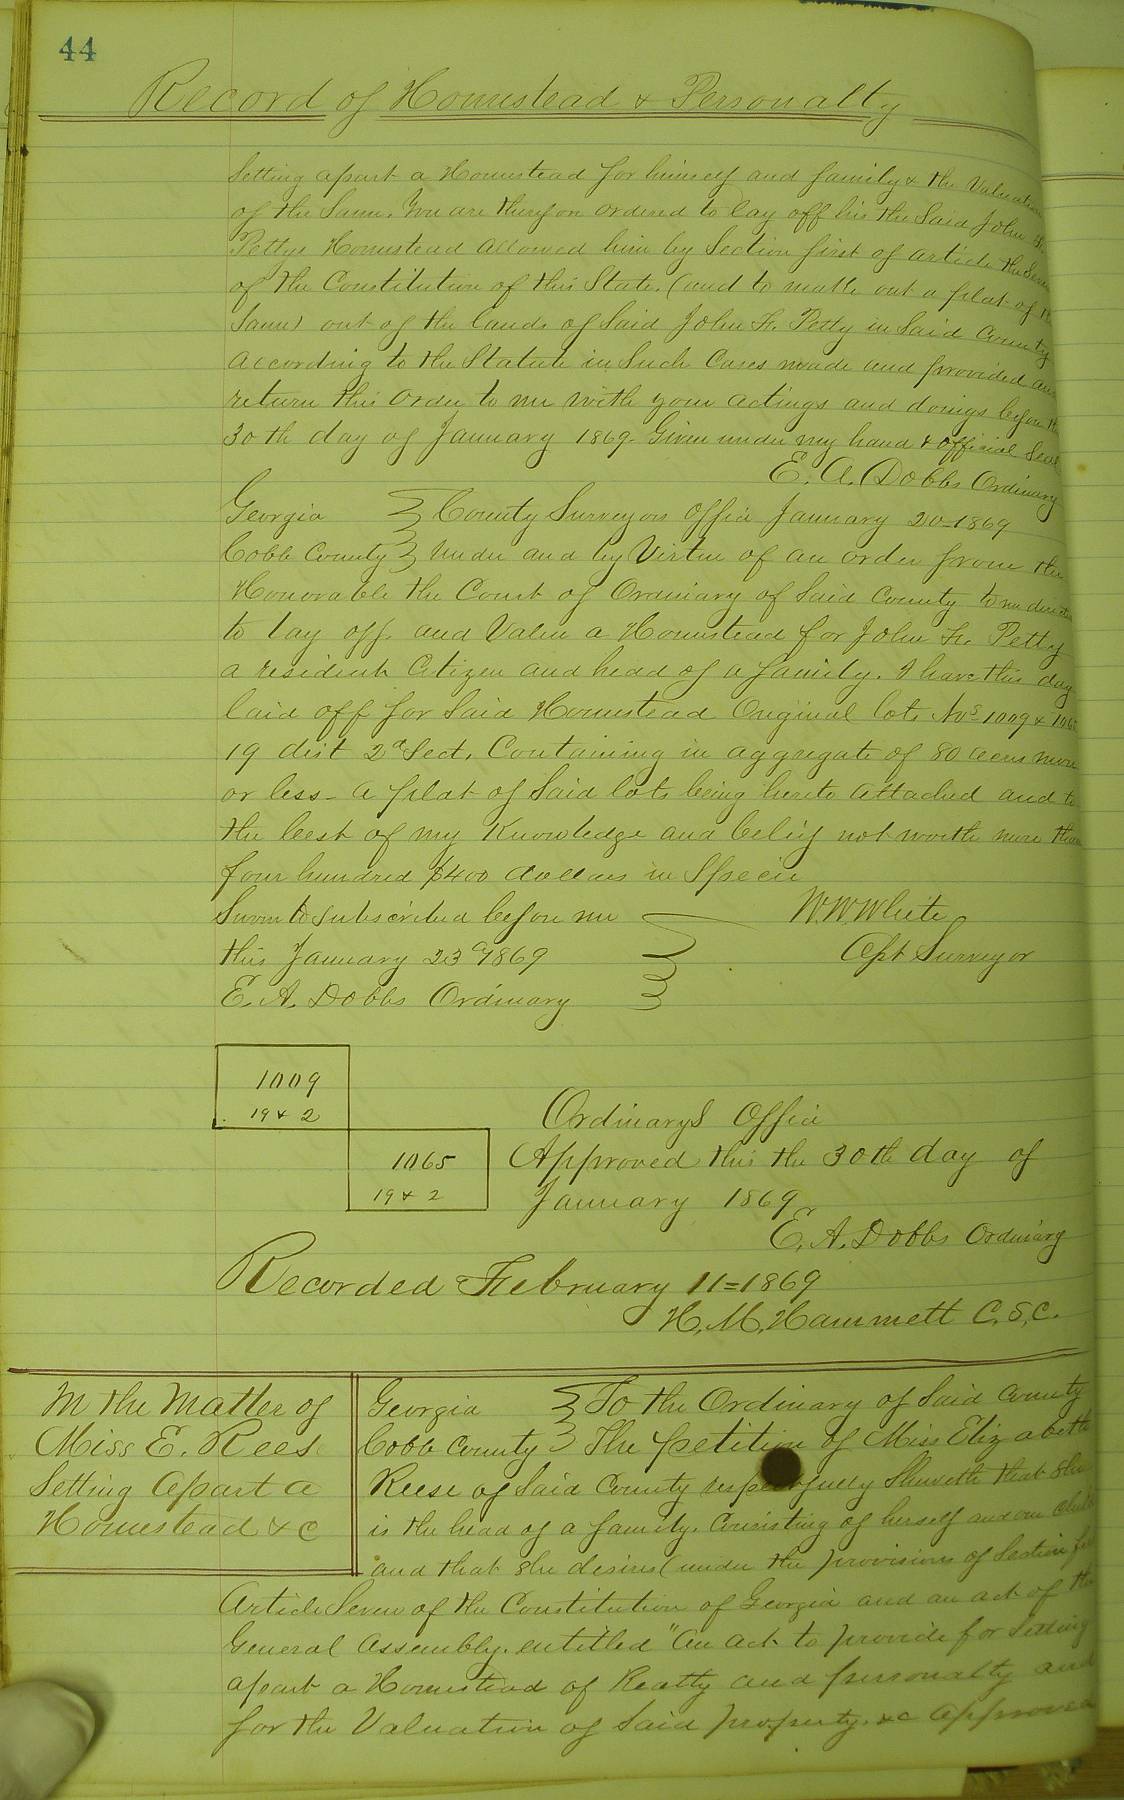 44
Record of Homestead & Personalty
Setting apart a Homestead for himself and family & the Valuation
of the Same. You are therefore ordered to lay off his the Said John H.
Pettys Homestead allowed him by Section first of article the Seven
of the Constitution of this State. (and to make out a plat of the
Same) out of the lands of Said John H. Petty in Said County
according to the Statute in Such Cases made and provided and
return this order to me with your actings and doings before the
30th day of January 1869. Given under my hand & official Seal
E. A. Dobbs Ordinary
Georgia County Surveyors Office January 20=1869
Cobb County Under and by Virtue of an order from the
Honorable the Court of Ordinary of Said County to me directed
to lay off and Value a Homestead for John H. Petty
a resident Citizen and head of a family. I have this day
laid off for Said Homestead Original lots Nos 1009 & 1065
19 dist 2d Sect. Containing in aggregate of 80 acres more
or less - a plat of Said lots being hereto attached and to
the best of my Knowledge and belief not worth more than
four hundred $400 dollars in Specie
Sworn to Subscribed before me W. W. White
this January 23d 1869 Apt Surveyor
E. A. Dobbs Ordinary
1009
19 & 2
1065
19 & 2
Ordinarys Office
Approved this the 30th day of
January 1869
E. A. Dobbs Ordinary
Recorded February 11=1869
H. M. Hammett C. S. C.
In the Matter of
Miss E. Rees
Setting apart a
Homestead &c
Georgia To the Ordinary of Said County
Cobb County The petition of Miss Elizabeth
Reese of Said County respectfully Sheweth that She
is the head of a family. Consisting of herself and one child
and that She desires (under the provisions of Section first
Article Seven of the Constitution of Georgia and an act of the
General Assembly. entitled "An act to provide for Setting
apart a Homestead of Realty and personalty and
for the Valuation of Said property. &c Approved